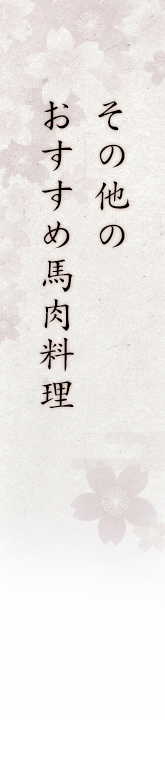 その他の
おすすめ馬肉料理